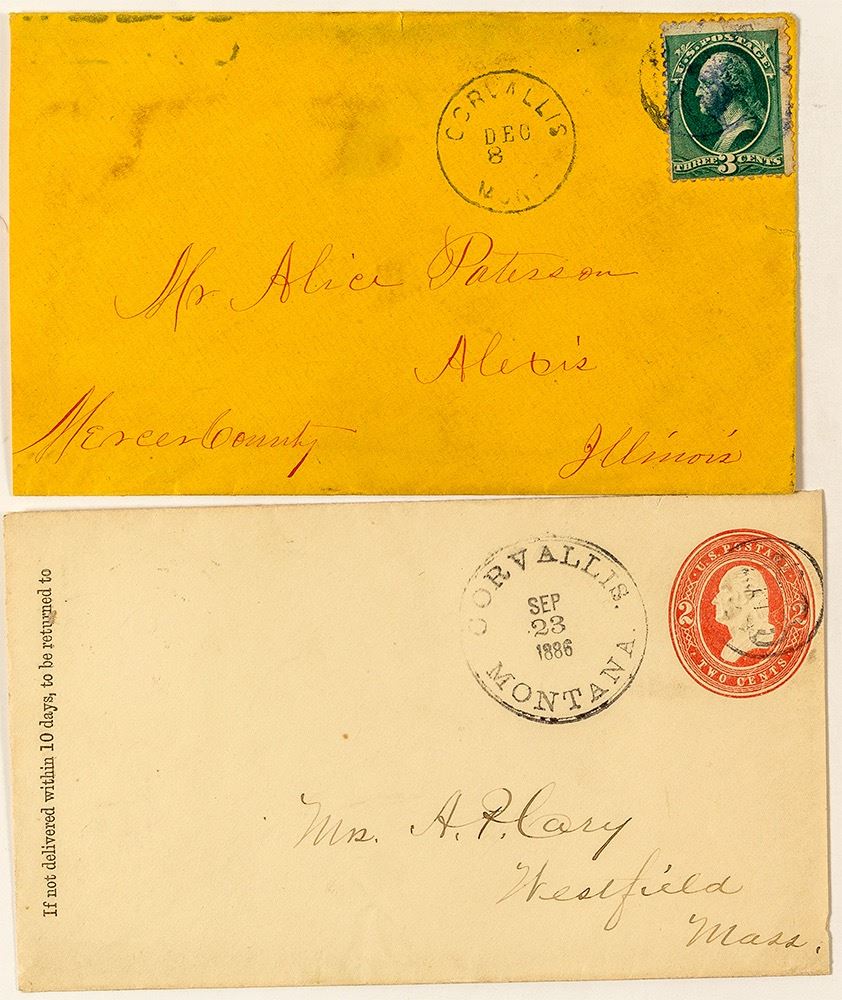 CORVALLIS
DEC
8
MONT
U.S. POSTAGE
THREE 3 CENTS
Mr Alice Paterson
Alexis
Mercer County
Illinois
If not delivered within 10 days, to be returned to
CORVALLIS.
SEP
23
1886
MONTANA.
U.S. POSTAGE
2 2
TWO CENTS
Mrs. A. P. Cary
Westfield
Mass.